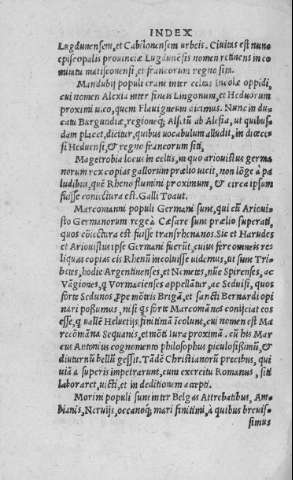 INDEX
Lugdunensem, et Cabilonensem urbeis. Ciuitas est nunc
episcopalis prouinciæ Lugdunēsis nomen retinens in co
mitatu matisconensi, et francorum regno sim.
Mandubij populi erant inter celtas incolæ oppidi,
cui nomen Alexia inter fineis Lingonum, et Heduorum
proximi uico, quem Flauignenm dicimus. Nunc in du
catu Burgundiæ, regioneq; Alsētū ab Alesia, ut quibus
dam placet, dicitur, quibus uocabulum alludit, in diœce
si Heduensi, & regno francorum siti,
Magetrobia locus in celtis, in quo ariouistus germa
norum rex copias gallorum prælio uicit, non lōge à pa
ludibus, quæ Rheno flumini proximum, & circa ipsum
fuisse coniectura est. Galli Toaut.
Marcomanni populi Germani sunt, qui cū Ariouis
sto Germanorum rege à Cæsare sunt prælio superati,
quos cōiectura est fuisse transrhenanos. Sic et Harudes
et Ariouistus ipse Germani fuerūt, cuius fere omneis re
liquas copias cis Rhenū incoluisse uidemus, ut sunt Trib
oetes, hodie Argentinenses, et Nemetes, nūc Spirenses, ac
Vāgiones, q Vormacienses appellātur, ac Sedusij, quos
forte Sedunos, ꝓpe mōtis Brigā, et sancti Bernardi opi
nari possumus, nisi q̄s forte Marcomānes conijceat eos
esse, q uallē Heluetijs finitimā īcolunt, cui nomen est Ma
recōmāna Sequanis, et mōti Iura proximā. cū his Mar
cus Antonius cognomento philosophus piculosissimū, &
diuturnū bellū gessit. Tādē Christianorū precibus, qui
uiā a superis impetrarunt, cum exercitu Romanus, siti
laboraret, uicti, et in deditionem accepti.
Morini populi sunt inter Belgas Attrebatibus, Am
bianis, Neruijs, oceanoq; mari finitimi, à quibus breuis-
simus